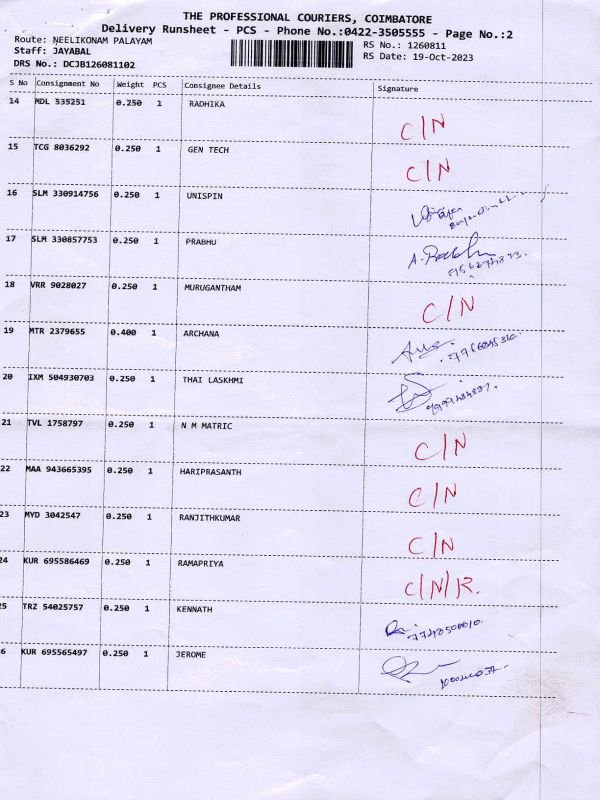 THE PROFESSIONAL COURIERS, COIMBATORE
Delivery Runsheet - PCS - Phone No.:0422-3505555 - Page No.:2
Route: NEELIKONAM PALAYAM
Staff: JAYABAL
DRS No.: DCJB126081102
RS No.: 1260811
RS Date: 19-Oct-2023
S No Consignment No Weight PCS Consignee Details Signature
14 MDL 535251 0.250 1 RADHIKA C/N
15 TCG 8036292 0.250 1 GEN TECH C/N
16 SLM 330914756 0.250 1 UNISPIN
17 SLM 330857753 0.250 1 PRABHU A. Prabhu
18 VRR 9028027 0.250 1 MURUGANTHAM C/N
19 MTR 2379655 0.400 1 ARCHANA
20 IXM 504930703 0.250 1 THAI LASKHMI
21 TVL 1758797 0.250 1 N M MATRIC C/N
22 MAA 943665395 0.250 1 HARIPRASANTH C/N
23 MYD 3042547 0.250 1 RANJITHKUMAR C/N
24 KUR 695586469 0.250 1 RAMAPRIYA C/N/R.
5 TRZ 54025757 0.250 1 KENNATH
6 KUR 695565497 0.250 1 JEROME